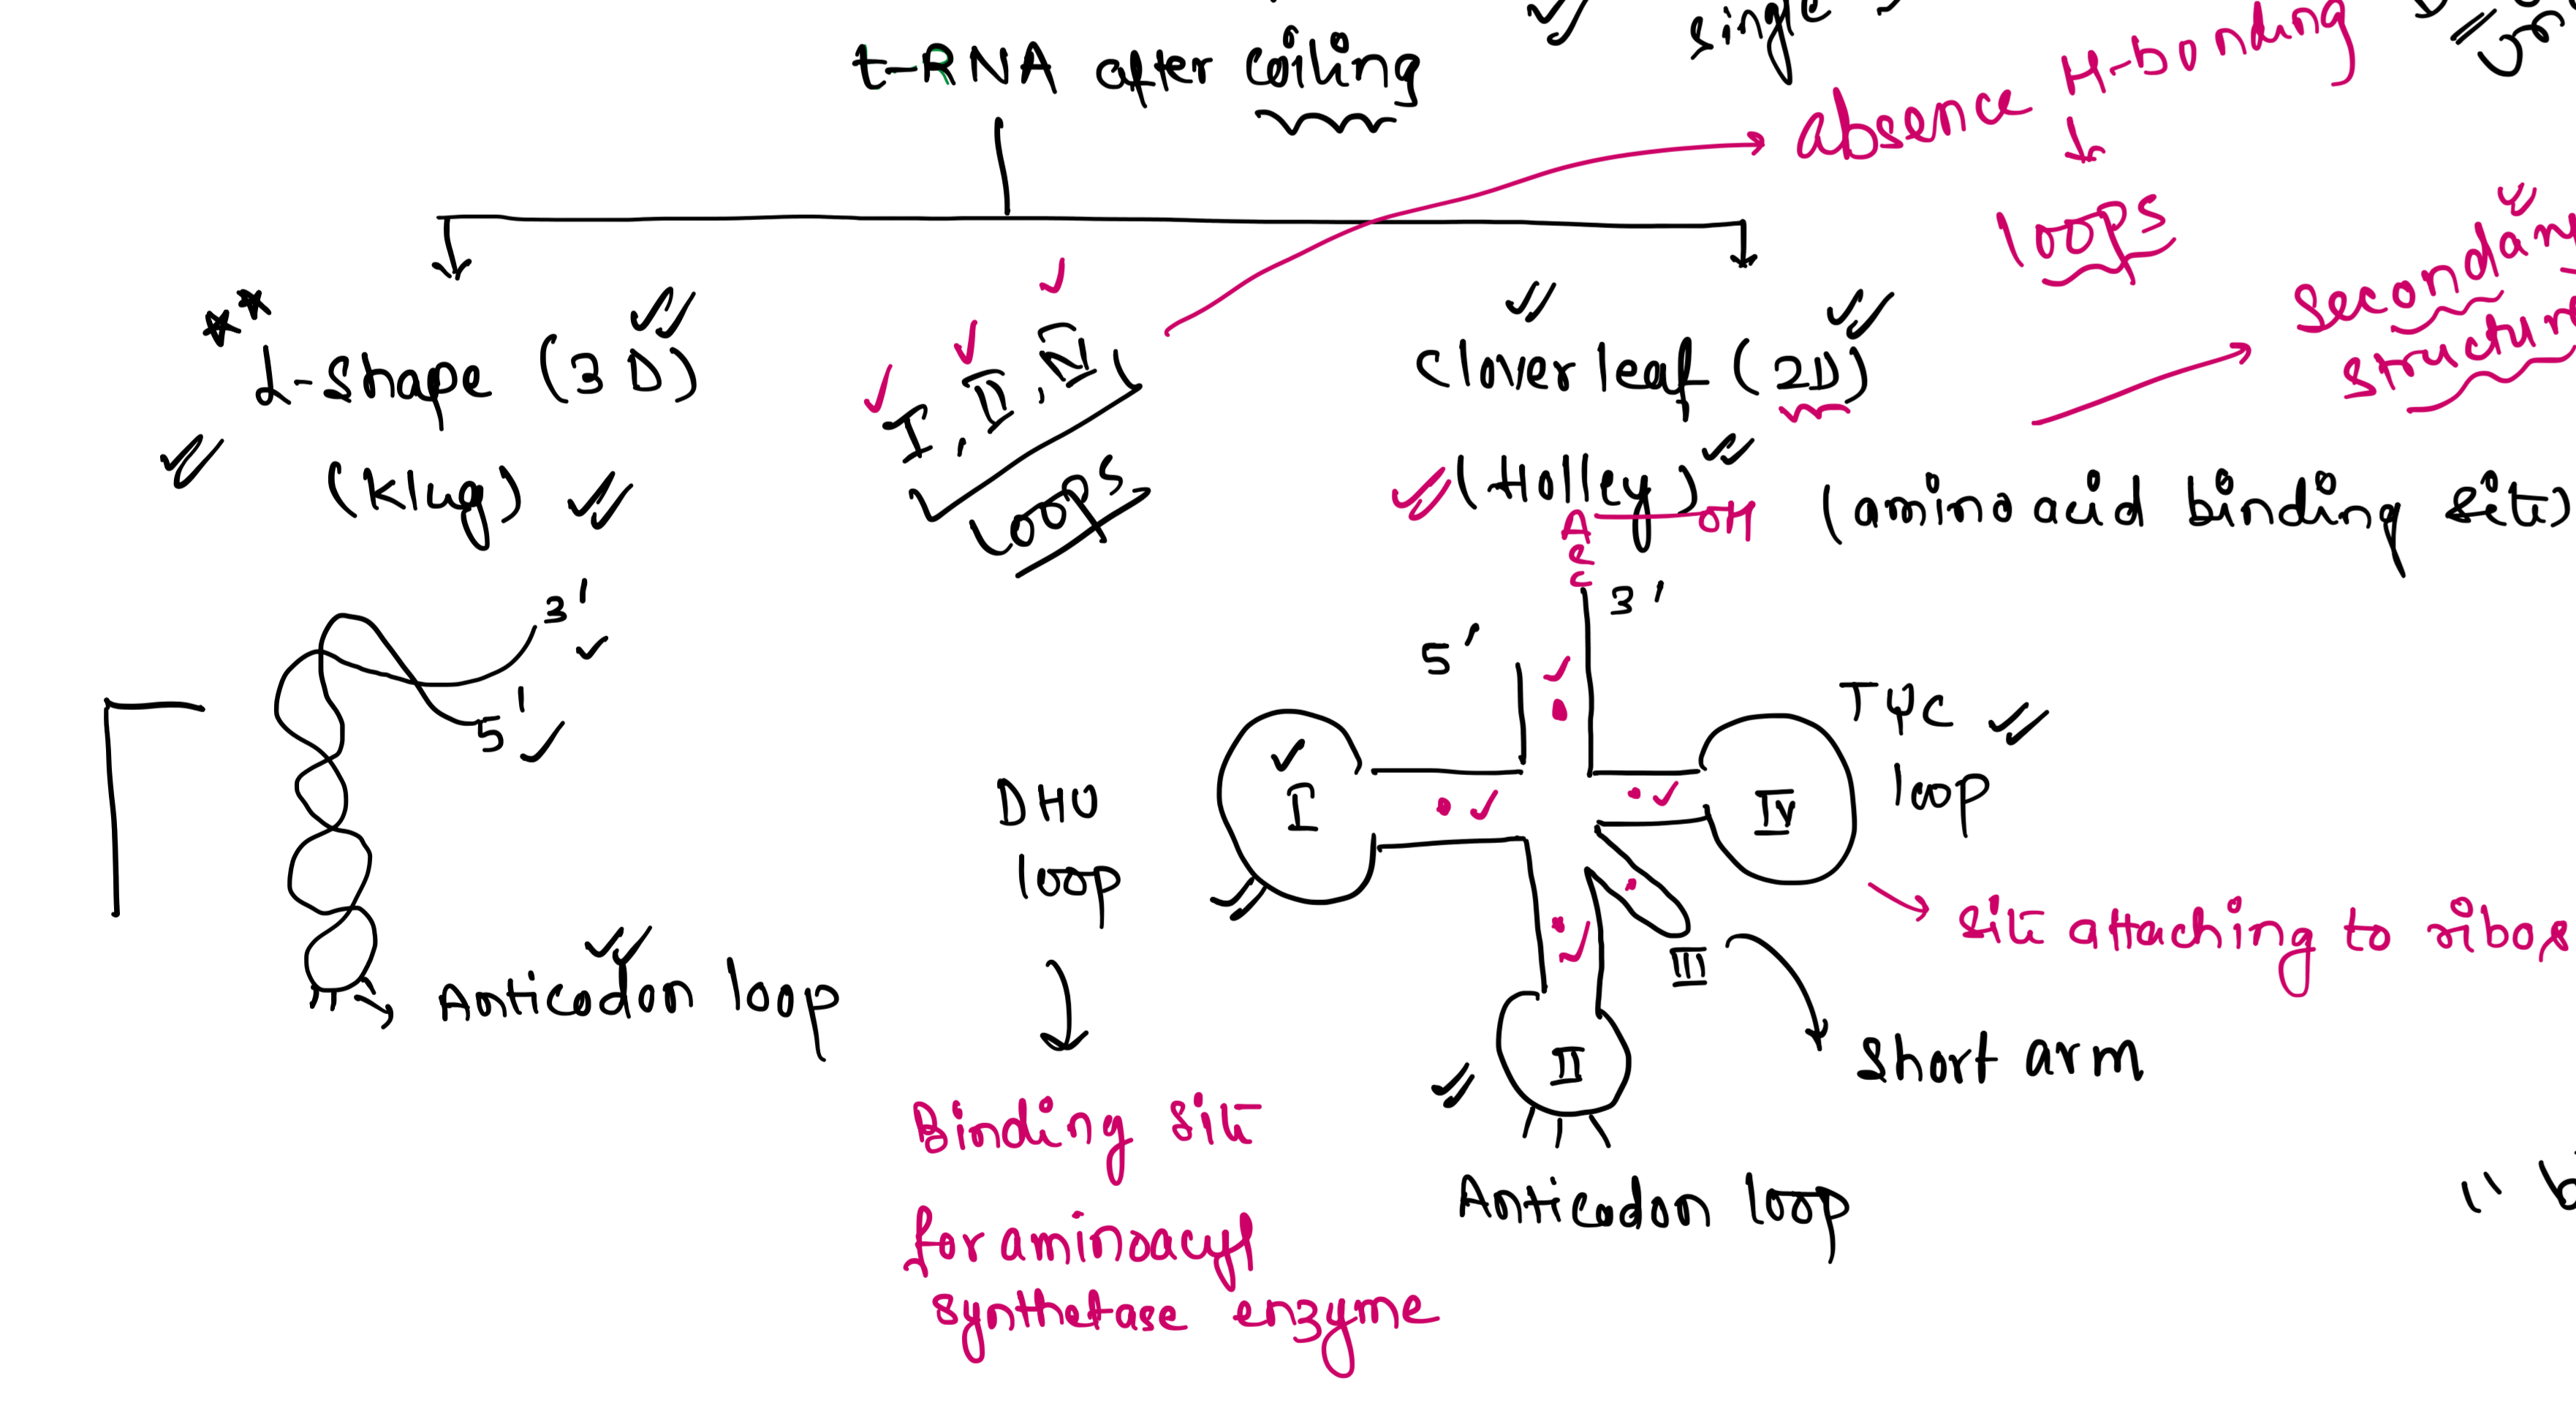 t-RNA after coiling
single
absence H-bonding
loops
Secondary
structure
L-shape (3D)
(Klug)
I, II, IV
loops
Cloverleaf (2D)
(Holley)
A OH
C
C
(amino acid binding site)
3'
5'
3'
5'
Anticodon loop
DHU
loop
I
IV
TψC
loop
III
II
site attaching to ribos
Short arm
Anticodon loop
Binding site
for aminoacyl
synthetase enzyme